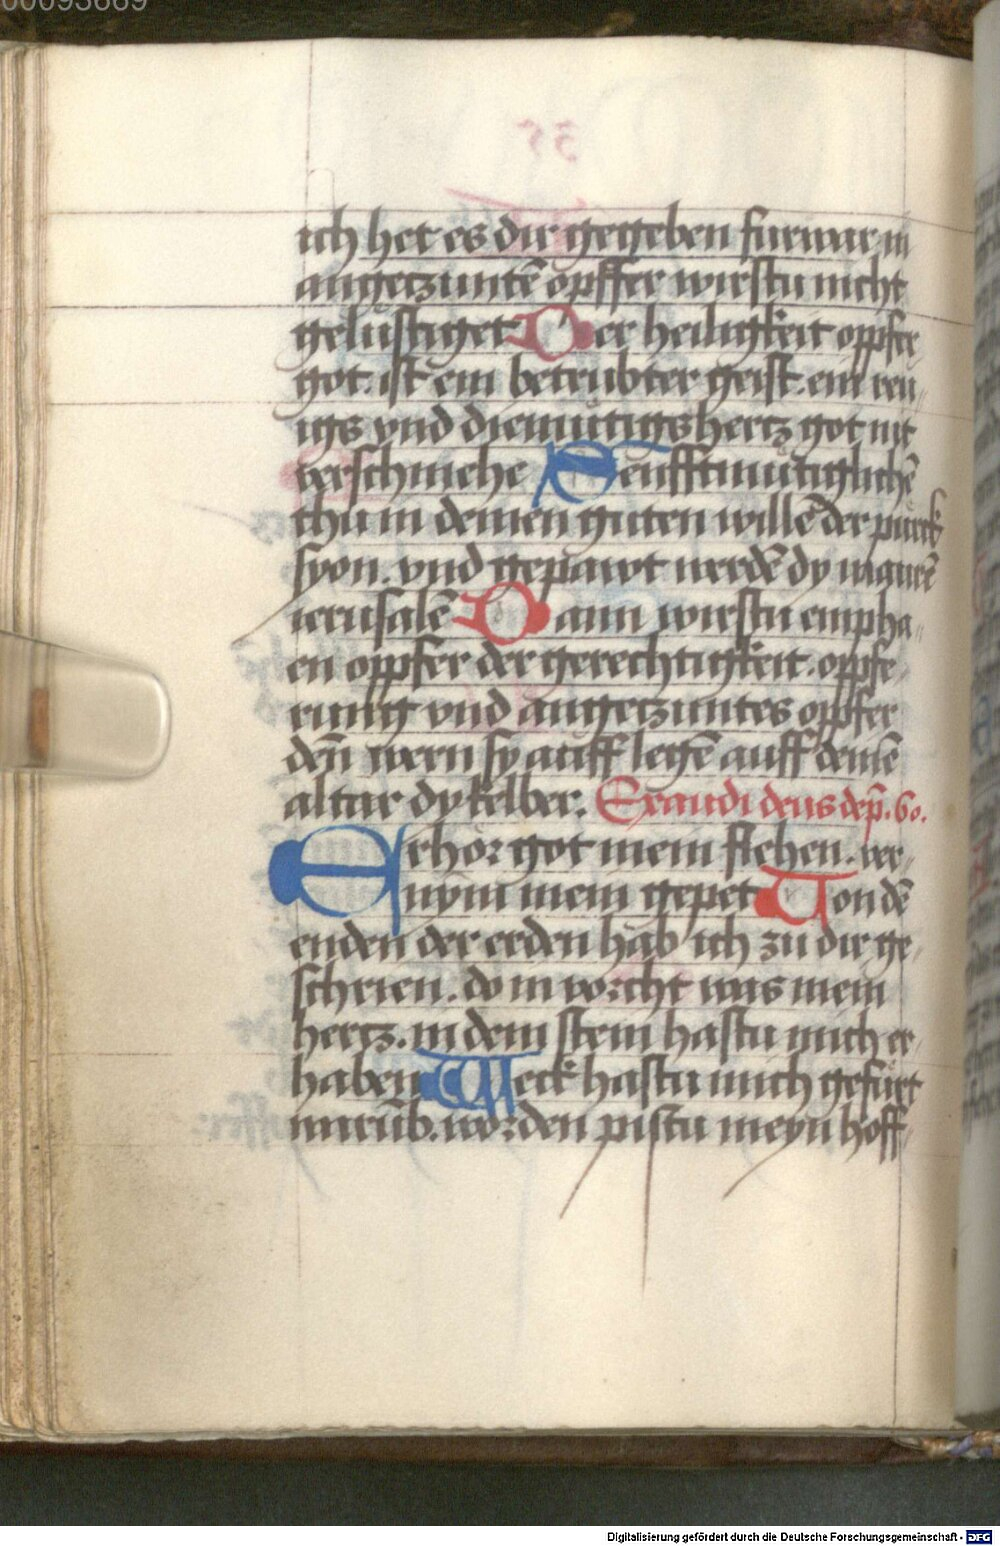 00093669
35
ich het es dir gegeben furwar in
angetzuntē opffer wirstu nicht
gelustiget Der heiligkeit oppfer
got. ist ein betrubter geist. ein reu
igs vnd diemütigs hertz got nit
verschmehe Senfftmütiglichē
thu in deinen guten willē der purck
syon. vnd gepawt werdē dy maurē
ierusalē Dann wirstu empha
en oppfer der gerechtigkeit. oppfe
rung vnd angetzuntes oppfer
dēn wern sy auff legē auff deinē
altar dy kelber. Exaudi deus dep̄. 60.
Erhör got mein flehen. ver
nym mein gepet Von dē
enden der erden hab ich zu dir ge
schrien. do in vorcht was mein
hertz. in dem stein hastu mich er
haben Weck hastu mich gefurt
worden pistu meyn hoff
Digitalisierung gefördert durch die Deutsche Forschungsgemeinschaft - DFG